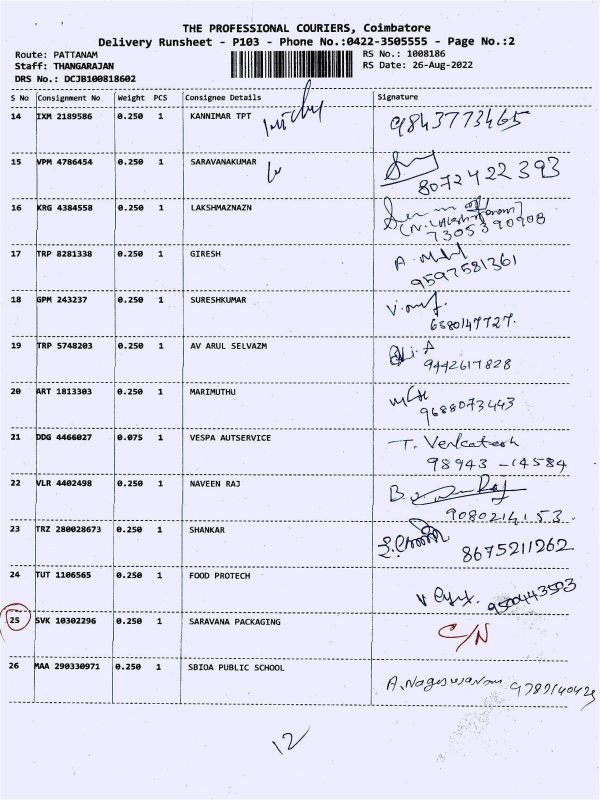 THE PROFESSIONAL COURIERS, Coimbatore
Delivery Runsheet - P103 - Phone No.:0422-3505555 - Page No.:2
Route: PATTANAM
RS No.: 1008186
Staff: THANGARAJAN
RS Date: 26-Aug-2022
DRS No.: DCJB100818602
S No Consignment No Weight PCS Consignee Details Signature
14 IXM 2189586 0.250 1 KANNIMAR TPT 9843773465
15 VPM 4786454 0.250 1 SARAVANAKUMAR
8072422393
16 KRG 4384558 0.250 1 LAKSHMAZNAZN
7305390908
17 TRP 8281338 0.250 1 GIRESH
9597581361
18 GPM 243237 0.250 1 SURESHKUMAR
6380147727.
19 TRP 5748203 0.250 1 AV ARUL SELVAZM
9442617828
20 ART 1813303 0.250 1 MARIMUTHU
9688073443
21 DDG 4466027 0.075 1 VESPA AUTSERVICE T. Venkatesh
98943 -14584
22 VLR 4402498 0.250 1 NAVEEN RAJ
9080214153.
23 TRZ 280028673 0.250 1 SHANKAR
8675211262
24 TUT 1106565 0.250 1 FOOD PROTECH
9500443503
25 SVK 10302296 0.250 1 SARAVANA PACKAGING C/N
26 MAA 290330971 0.250 1 SBIOA PUBLIC SCHOOL A. Nageswaran
12